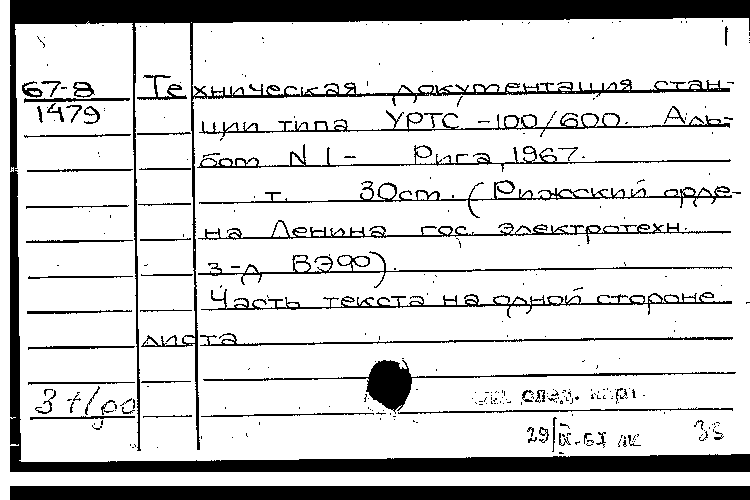 1
67-8 Техническая документация стан-
1479 ции типа УРТС-100/600. Аль-
бом N 1- Рига, 1967.
т. 30cm. (Рижский орде-
на Ленина гос. электротехн.
з-д ВЭФ).
Часть текста на одной стороне
листа
см. след. карт.
29/IX-67